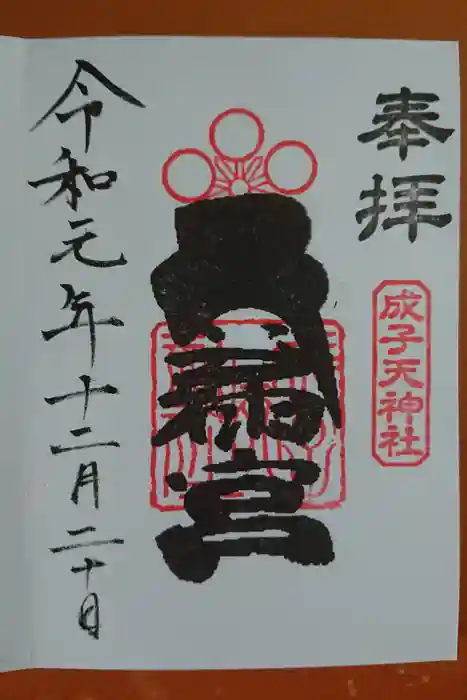 奉拝
成子天神社
天満宮
令和元年十二月二十日